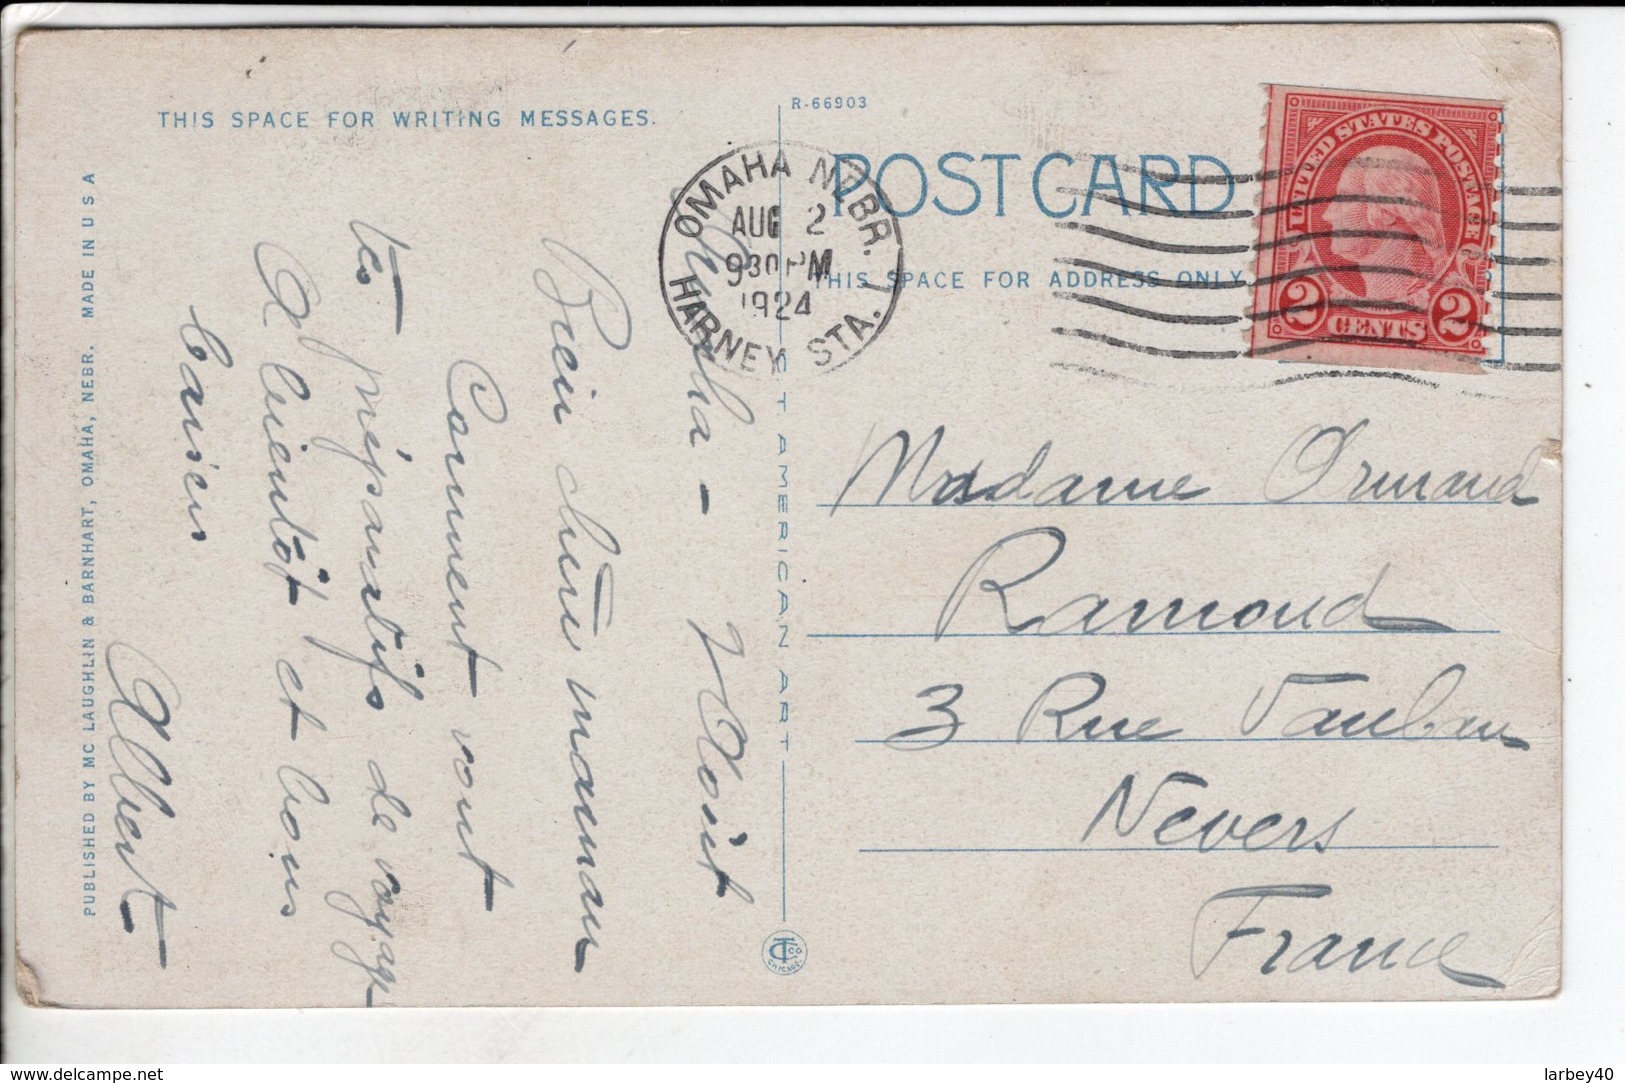 THIS SPACE FOR WRITING MESSAGES.
R-66903
POST CARD
THIS SPACE FOR ADDRESS ONLY
OMAHA NEBR.
AUG 2
930 PM
1924
HARNEY STA. 1
UNITED STATES POSTAGE
2 CENTS 2
Omaha - 2 Août
Bien chère maman
Comment vont
tes préparatifs de voyage
A bientôt et bons
baisers
Albert
Madame Armand
Ramond
3 Rue Vauban
Nevers
France
PUBLISHED BY MC LAUGHLIN & BARNHART, OMAHA, NEBR. MADE IN U S A
C. T. AMERICAN ART
CT CO
CHICAGO.
delcampe.net
larbey40